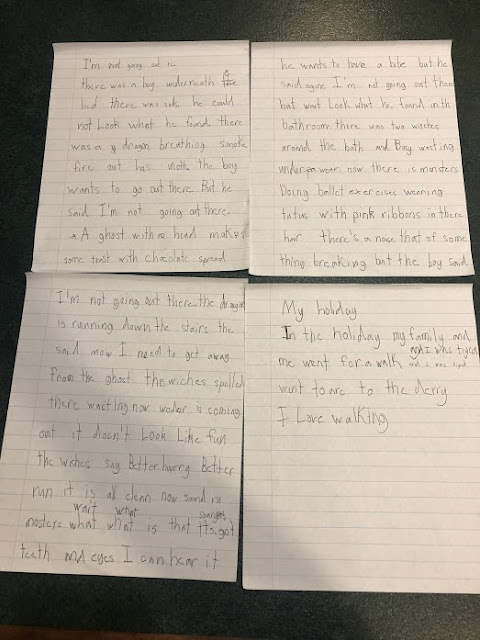 I'm not going out
there was a boy underneath
bed there was he could
not Look what he found there
was a dragon breathing smoke
fire out his the boy
wants to go out there But he
said I'm not going out there.
A ghost with a head makes
some toast with chocolate spread
he wants to have a bite but he
said agine I'm not going out ther
but wait Look what he found in th
bathroom there was two wishes
around the bath and Boy wasting
underpa wear now there is minsters
Doing ballet exercises wearing
tutus with pink ribbons in there
hair There's a noce that of some
thing breaking but the boy said
I'm not going out there the dragon
is running down the stairs the
said mow I need to get away
from the ghost the wiches spelled
there waeting now wader is coming
out it doesn't Look Like fun
the wishes say Better huerry Better
run it is all clean now sand no
wait what
mostere what what is that got
teeth and eyes I can hear it
My holiday
In the holiday my family and
me went for a walk and I was tyerd
went to are to the derry
I Love walking